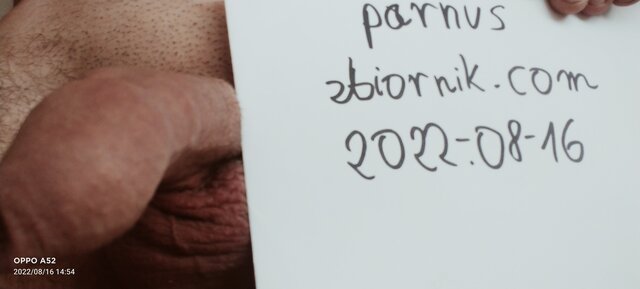 parnus
zbiornik.com
2022-08-16
OPPO A52
2022/08/16 14:54